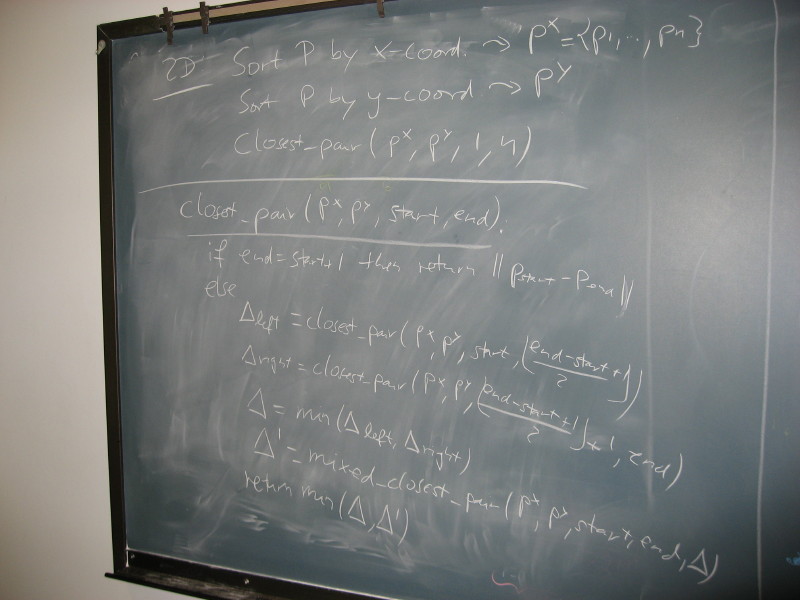 2D Sort P by x-coord. → P^x = {P1, ..., Pn}
Sort P by y-coord → P^y
Closest_pair (P^x, P^y, 1, n)
closest_pair (P^x, P^y, start, end):
if end=start+1 then return || Pstart - Pend ||
else
Δleft = closest_pair (P^x, P^y, start, ⌊(end-start+1)/2⌋)
Δright = closest_pair (P^x, P^y, ⌊(end-start+1)/2⌋+1, end)
Δ = min (Δleft, Δright)
Δ' = mixed_closest_pair (P^x, P^y, start, end, Δ)
return min (Δ, Δ')